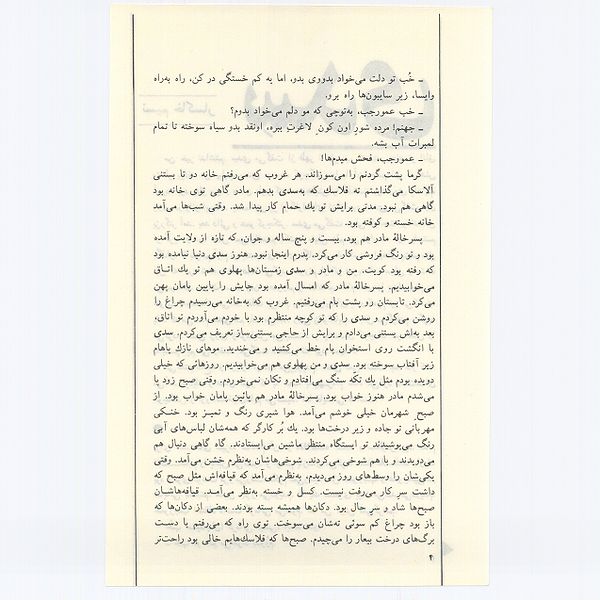 ـ خُب تو دلت می‌خواد بدووی بدو، اما یه کم خستگی در کن، راه به‌راه
وایسا، زیر سایبون‌ها راه برو.
ـ خب عمورجب، به‌توجی که مو دلم می‌خواد بدوم؟
ـ جهنم! مرده شور اون کون لاغرت ببره، اونقد بدو سیاه سوخته تا تمام
لمبرات آب بشه.
ـ عمورجب، فحش میدم‌ها!
گرما پشت گردنم را می‌سوزاند. هر غروب که می‌رفتم خانه دو تا بستنی
آلاسکا می‌گذاشتم ته فلاسک که به‌سدی بدهم. مادر گاهی توی خانه بود
گاهی هم نبود. مدتی برایش تو یك حمام کار پیدا شد. وقتی شب‌ها می‌آمد
خانه خسته و کوفته بود.
پسرخالهٔ مادر هم بود، بیست و پنج ساله و جوان، که تازه از ولایت آمده
بود و تو رنگ فروشی کار می‌کرد. پدرم اینجا نبود. هنوز سدی دنیا نیامده بود
که رفته بود کویت. من و مادر و سدی زمستان‌ها پهلوی هم تو یك اتـاق
می‌خوابیدیم. پسرخالهٔ مادر که امسال آمده بود جایش را پایین پامان پهن
می‌کرد. تابستان رو پشت بام می‌رفتیم. غروب که به‌خانه می‌رسیدم چراغ را
روشن می‌کردم و سدی را که تو کوچه منتظرم بود با خودم می‌آوردم تو اتاق،
بعد به‌اش بستنی می‌دادم و برایش از حاجی بستنی‌ساز تعریف می‌کردم. سدی
با انگشت روی استخوان پام خط می‌کشید و می‌خندید. موهای نازك پاهام
زیر آفتاب سوخته بود. سدی و من پهلوی هم می‌خوابیدیم. روزهائی که خیلی
دویده بودم مثل یك تکّه سنگ می‌افتادم و تکان نمی‌خوردم. وقتی صبح زود پا
می‌شدم مادر هنوز خواب بود. پسرخالهٔ مادر هم پائین پامان خواب بود. از
صبح شهرمان خیلی خوشم می‌آمد. هوا شیری رنگ و تمیـز بود. خنـکی
مهربانی تو جاده و زیر درخت‌ها بود. یك بُر کارگر که همه‌شان لباس‌های آبی
رنگ می‌پوشیدند تو ایستگاه منتظر ماشین می‌ایستادند. گاه گاهی دنبال هم
می‌دویدند و با هم شوخی می‌کردند. شوخی‌هاشان به‌نظرم خشن می‌آمد. وقتی
یکی‌شان را وسط‌های روز می‌دیدم، به‌نظرم می‌آمد که قیافه‌اش مثل صبح که
داشت سر کار می‌رفت نیست. کسل و خسته به‌نظر می‌آمـد. قیافه‌هاشـان
صبح‌ها شاد و سر حال بود. دکان‌ها همیشه بسته بودند. بعضی از دکان‌ها که
باز بود چراغ کم سوئی ته‌شان می‌سوخت. توی راه که می‌رفتم با دست
برگ‌های درخت بیعار را می‌چیدم. صبح‌ها که فلاسك‌هایم خالی بود راحت‌تر
۴